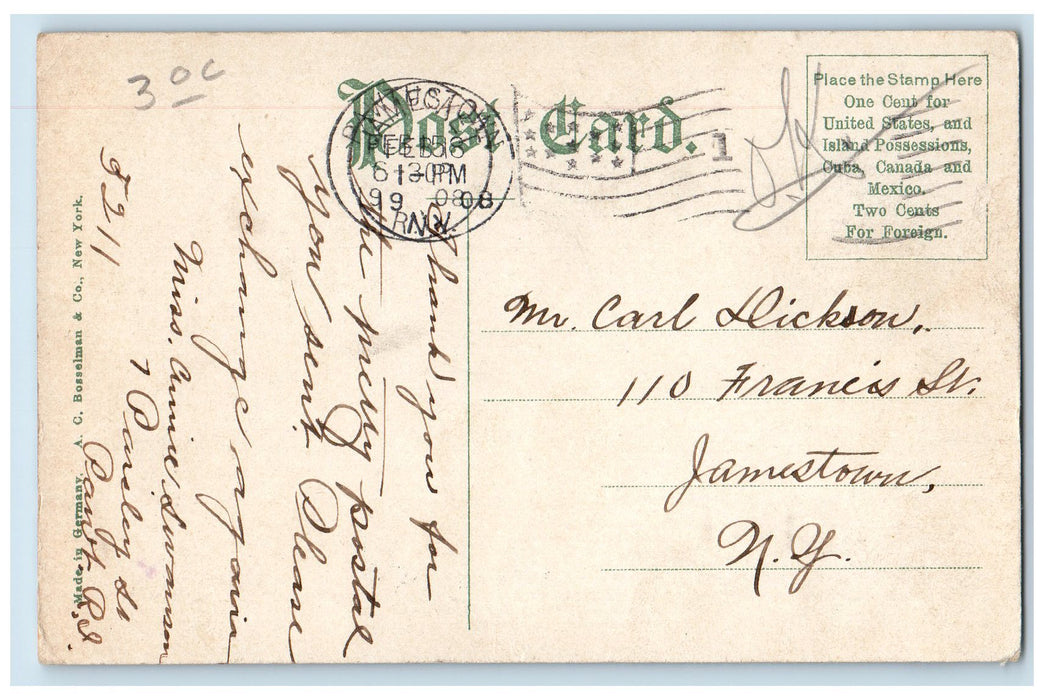 3 0c
Post Card.
FEB 16
1-30PM
1908
N.Y.
R.I.
1
Place the Stamp Here
One Cent for
United States, and
Island Possessions,
Cuba, Canada and
Mexico.
Two Cents
For Foreign.
Mr. Carl Dickson,
110 Francis St.
Jamestown,
N.Y.
Thank you for
the pretty postal
you sent. Please
exchange again
Miss. Annie Swanson
7 Parsley St
Pawt. R.I.
5211
Made in Germany. A. C. Bosselman & Co., New York.